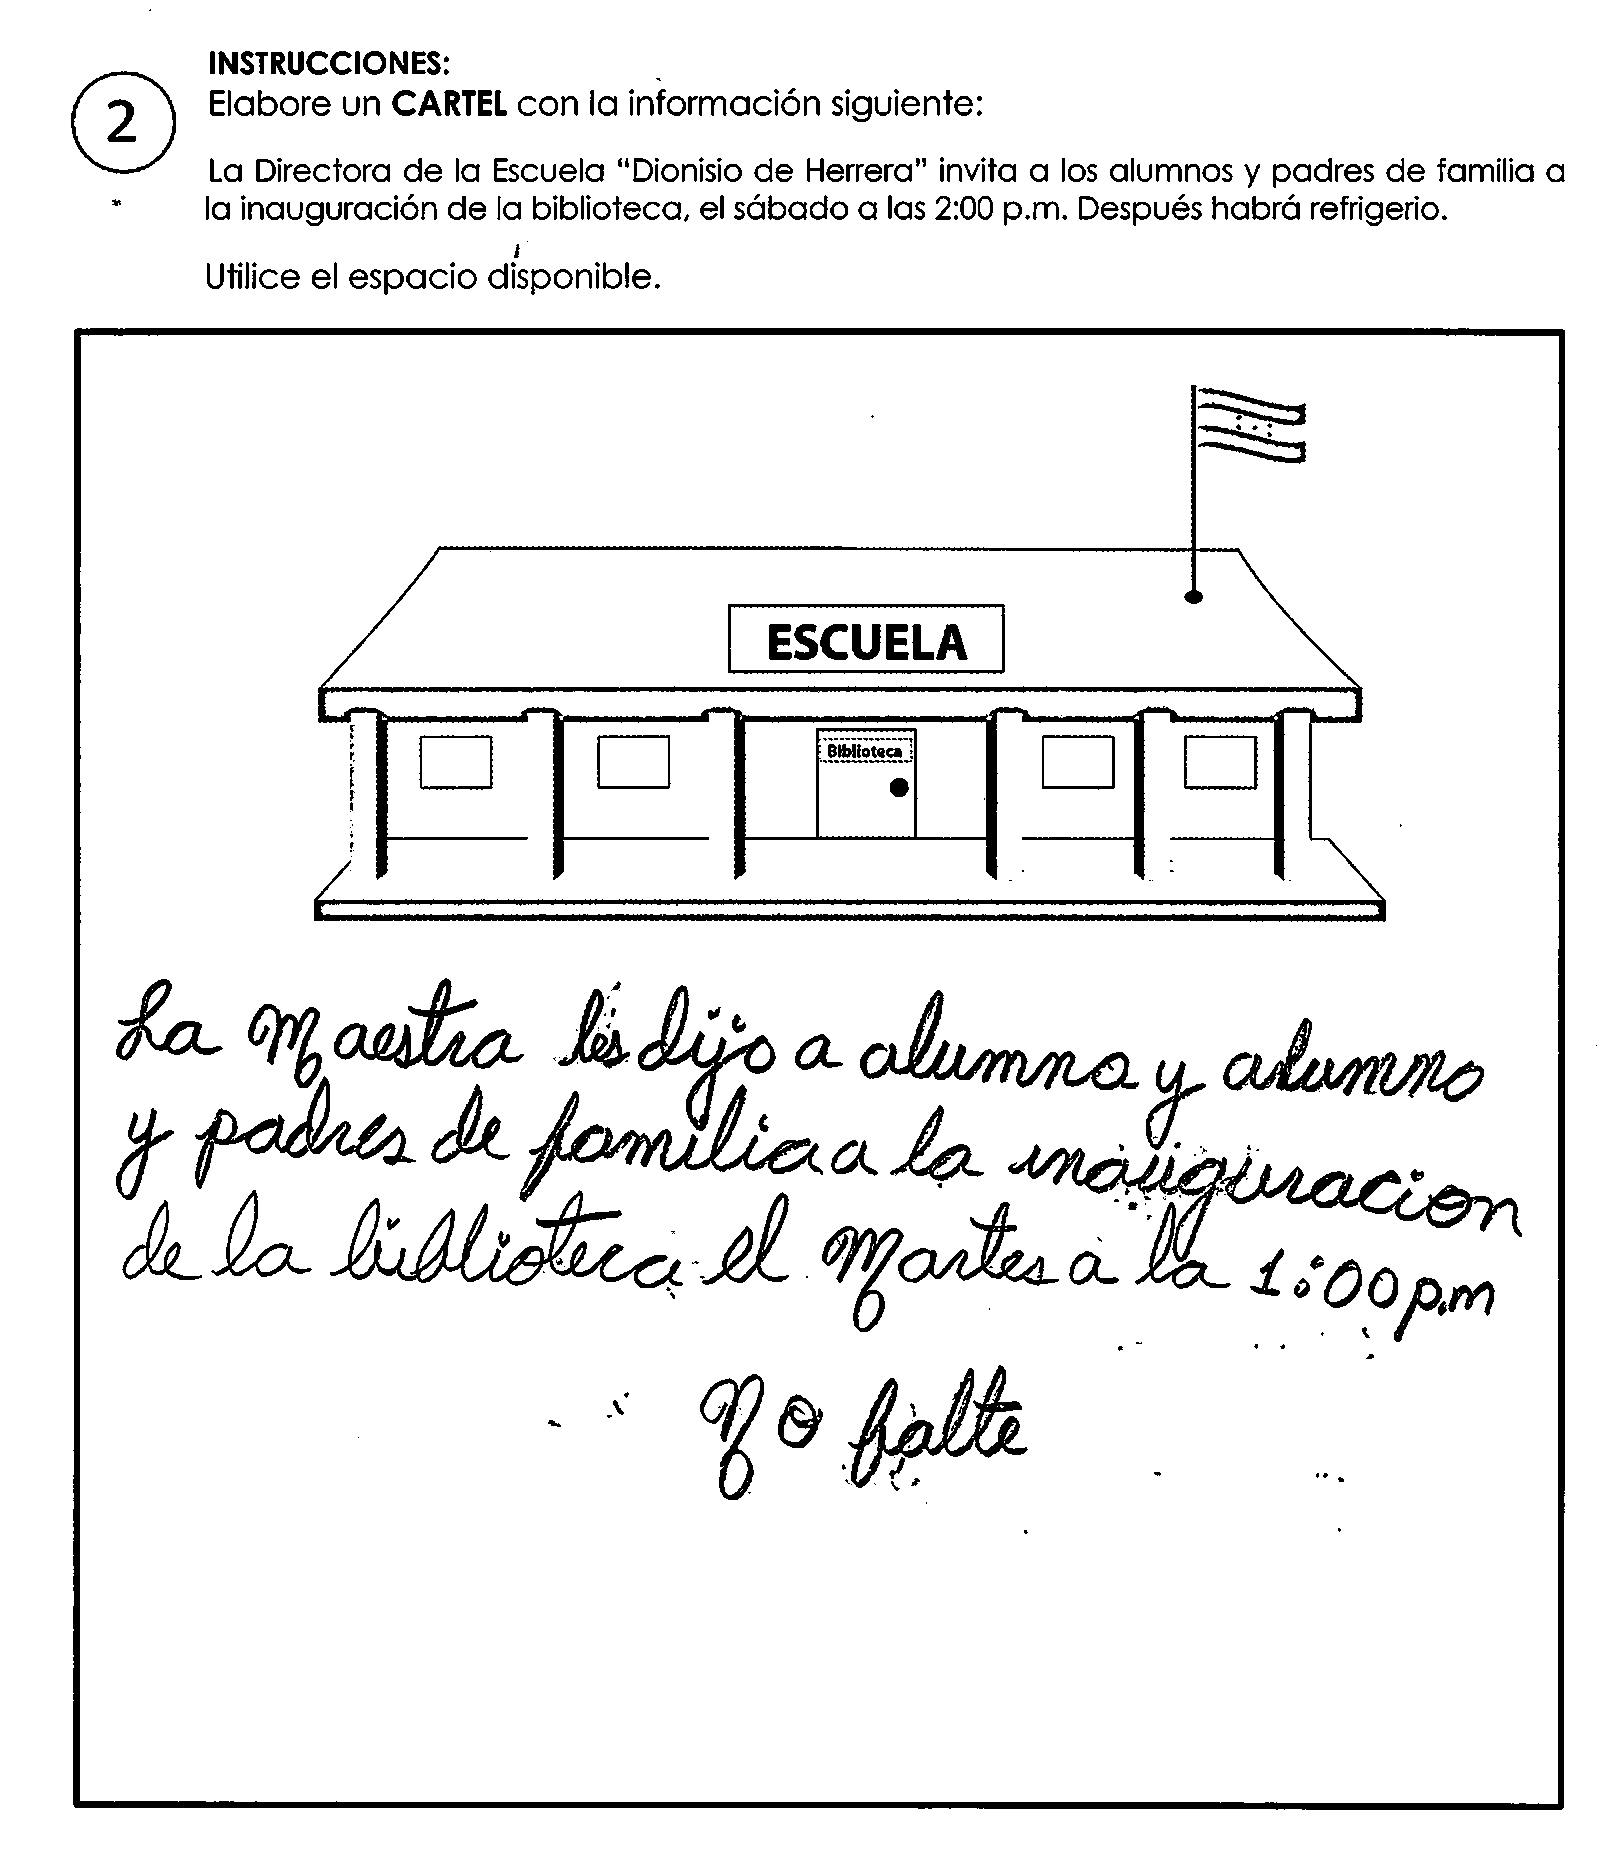 INSTRUCCIONES:
2
Elabore un CARTEL con la información siguiente:
La Directora de la Escuela "Dionisio de Herrera" invita a los alumnos y padres de familia a
la inauguración de la biblioteca, el sábado a las 2:00 p.m. Después habrá refrigerio.
Utilice el espacio disponible.
ESCUELA
Biblioteca
La Maestra les dijo a alumna y alumno
y padres de familia a la inauguracion
de la biblioteca el Martes a la 1:00 p.m
No falte